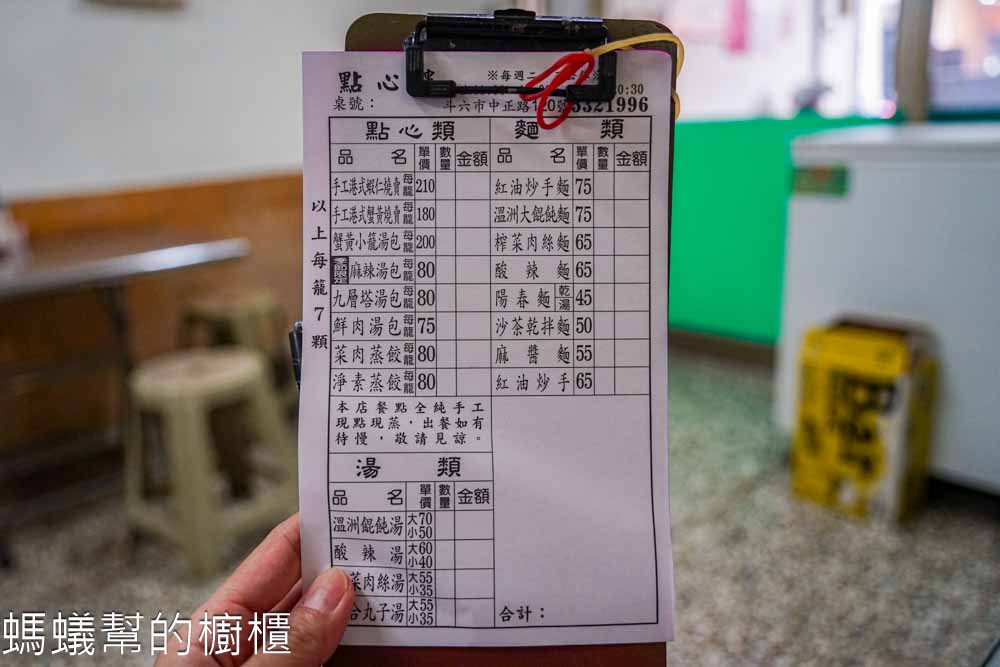 點心
※每週二
桌號：
0:30
斗六市中正路120號5321996
點心類
品名 單價 數量 金額
手工港式蝦仁燒賣 每籠 210
手工港式蟹黃燒賣 每籠 180
蟹黃小籠湯包 每籠 200
麻辣湯包 每籠 80
九層塔湯包 每籠 80
鮮肉湯包 每籠 75
菜肉蒸餃 每籠 80
淨素蒸餃 每籠 80
以上每籠7顆
本店餐點全純手工
現點現蒸，出餐如有
待慢，敬請見諒。
麵類
品名 單價 數量 金額
紅油炒手麵 75
溫洲大餛飩麵 75
榨菜肉絲麵 65
酸辣麵 65
陽春麵 乾湯 45
沙茶乾拌麵 50
麻醬麵 55
紅油炒手 65
湯類
品名 單價 數量 金額
溫洲餛飩湯 大70 小50
酸辣湯 大60 小40
菜肉絲湯 大55 小35
合丸子湯 大55 小35
合計：
螞蟻幫的櫥櫃
Bar